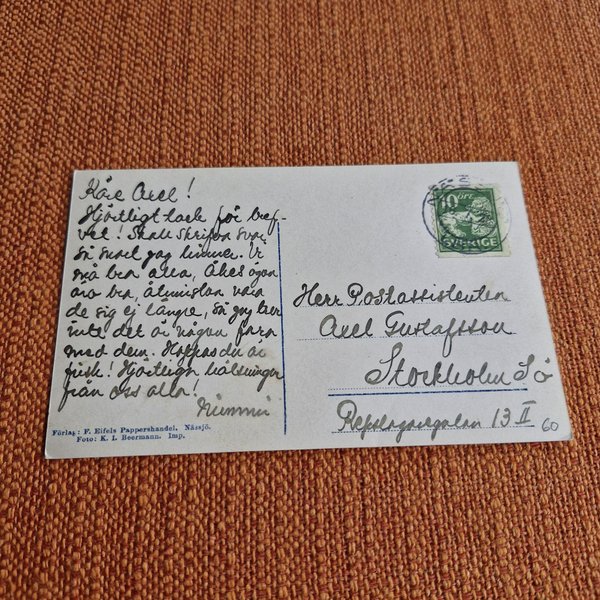 Käre Axel!
Hjärtligt tack för bref-
vet! Skall skrifva svar
så snart jag hinner. Vi
må bra alla, Åkes ögon
äro bra, åtminstone visa
de sig ej längre, så jag tror
inte det är någon fara
med dem. Hoppas du är
frisk! Hjärtliga hälsningar
från oss alla!
Mimmi
Förlag: F. Eifels Pappershandel, Nässjö.
Foto: K. I. Beermann. Imp.
10 ÖRE
SVERIGE
Herr Postassistenten
Axel Gustafsson
Stockholm Sö
Repslagaregatan 13 II
60